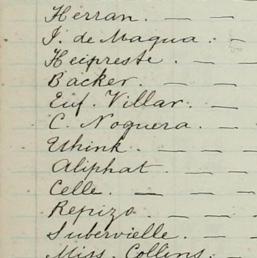 Herran. — —
J. de Magua. — —
Heipreste. — —
Bäcker. — —
Euf. Villar. — —
C. Noguera. — —
Uhink. — —
Aliphat — —
Celle. — — —
Repizo. — —
Subervielle. — —
Miss. Collins. —